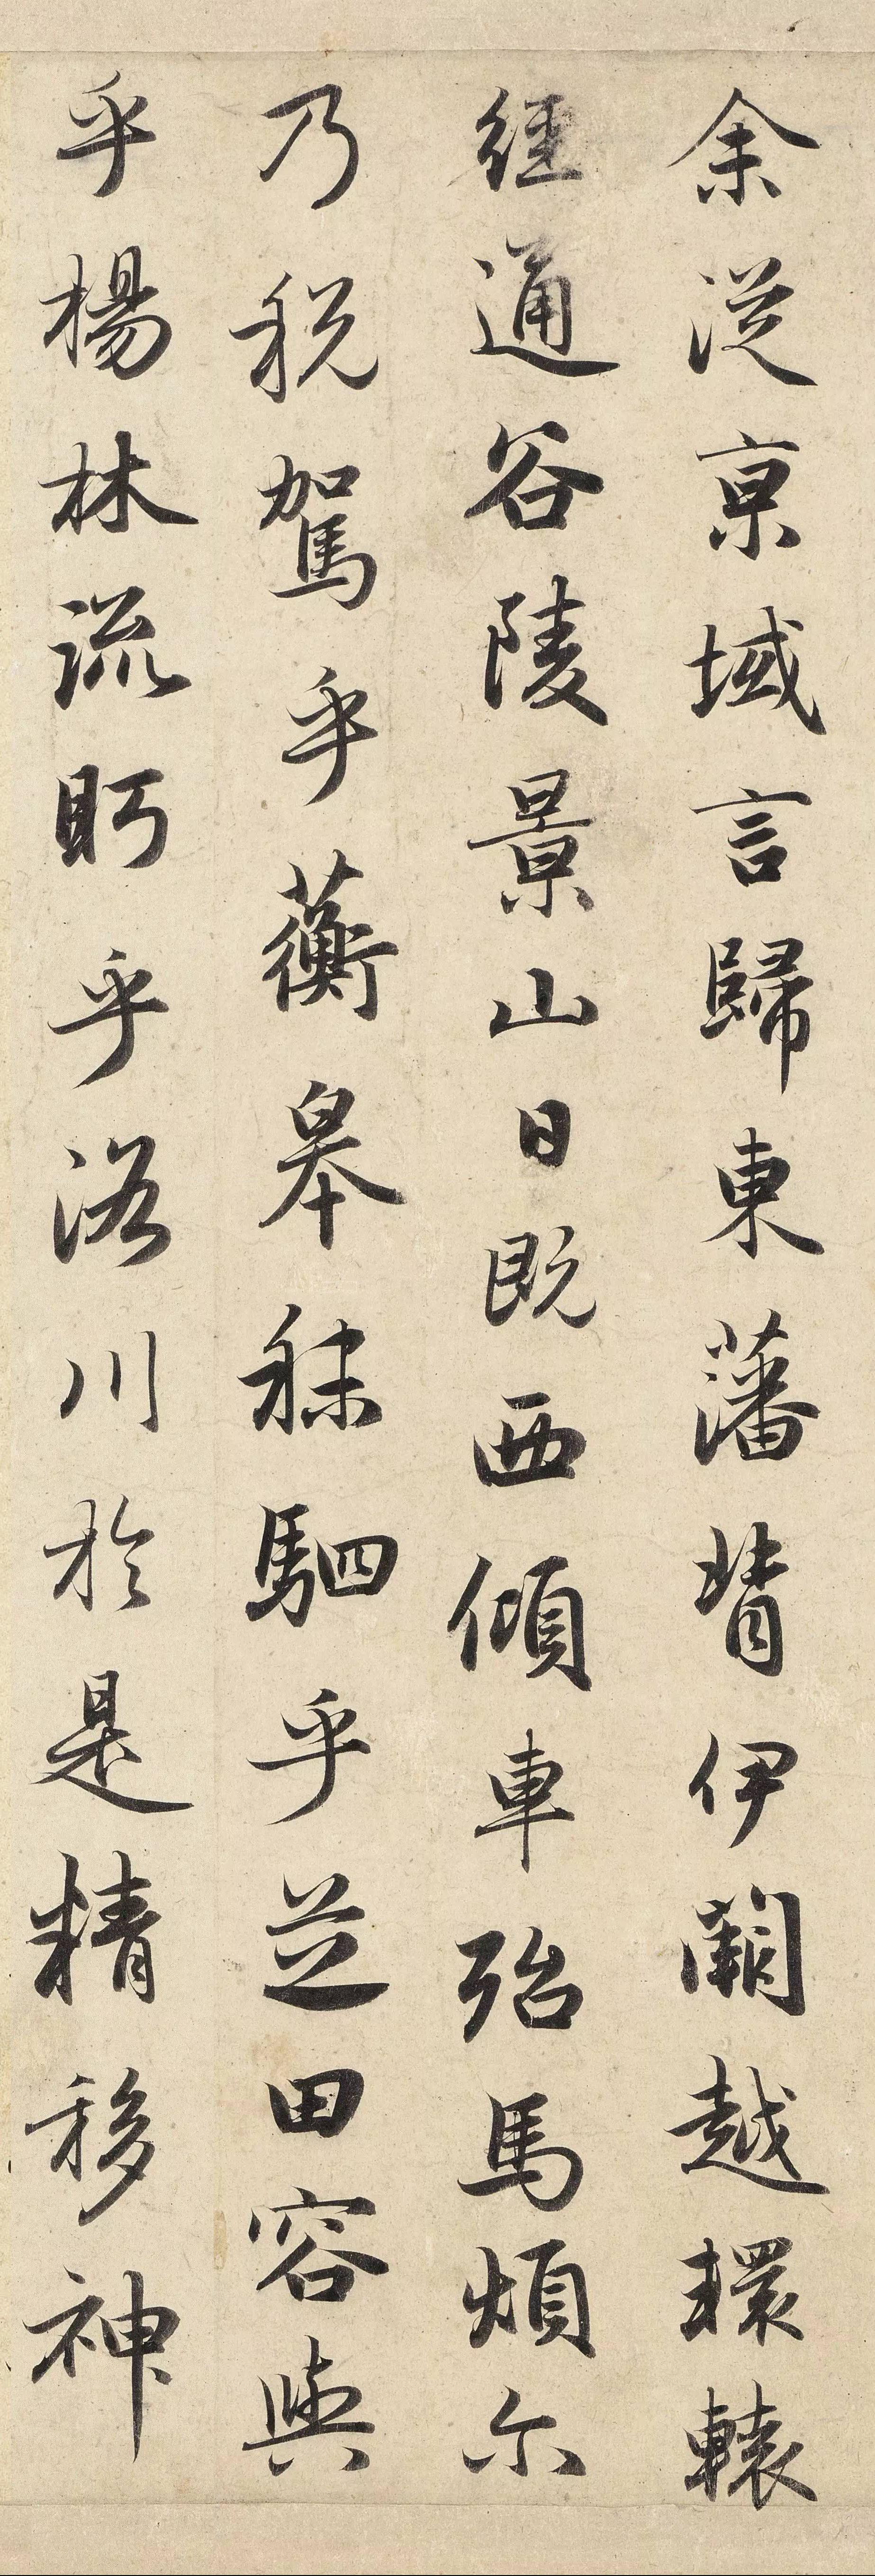 余従京域言歸東藩背伊闕越轘轅
經通谷陵景山日既西傾車殆馬煩尒
乃税駕乎蘅皋秣駟乎芝田容與
乎楊林流眄乎洛川於是精移神